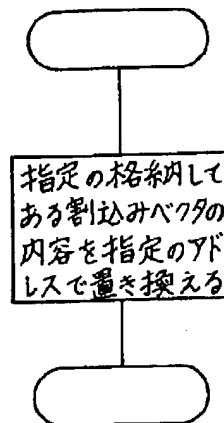 指定の格納して
ある割込みベクタの
内容を指定のアド
レスで置き換える